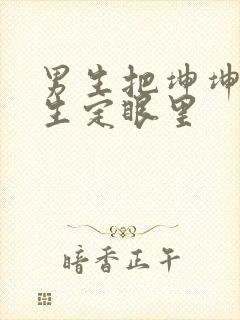 男生把坤坤
生定眼里
暗香正午